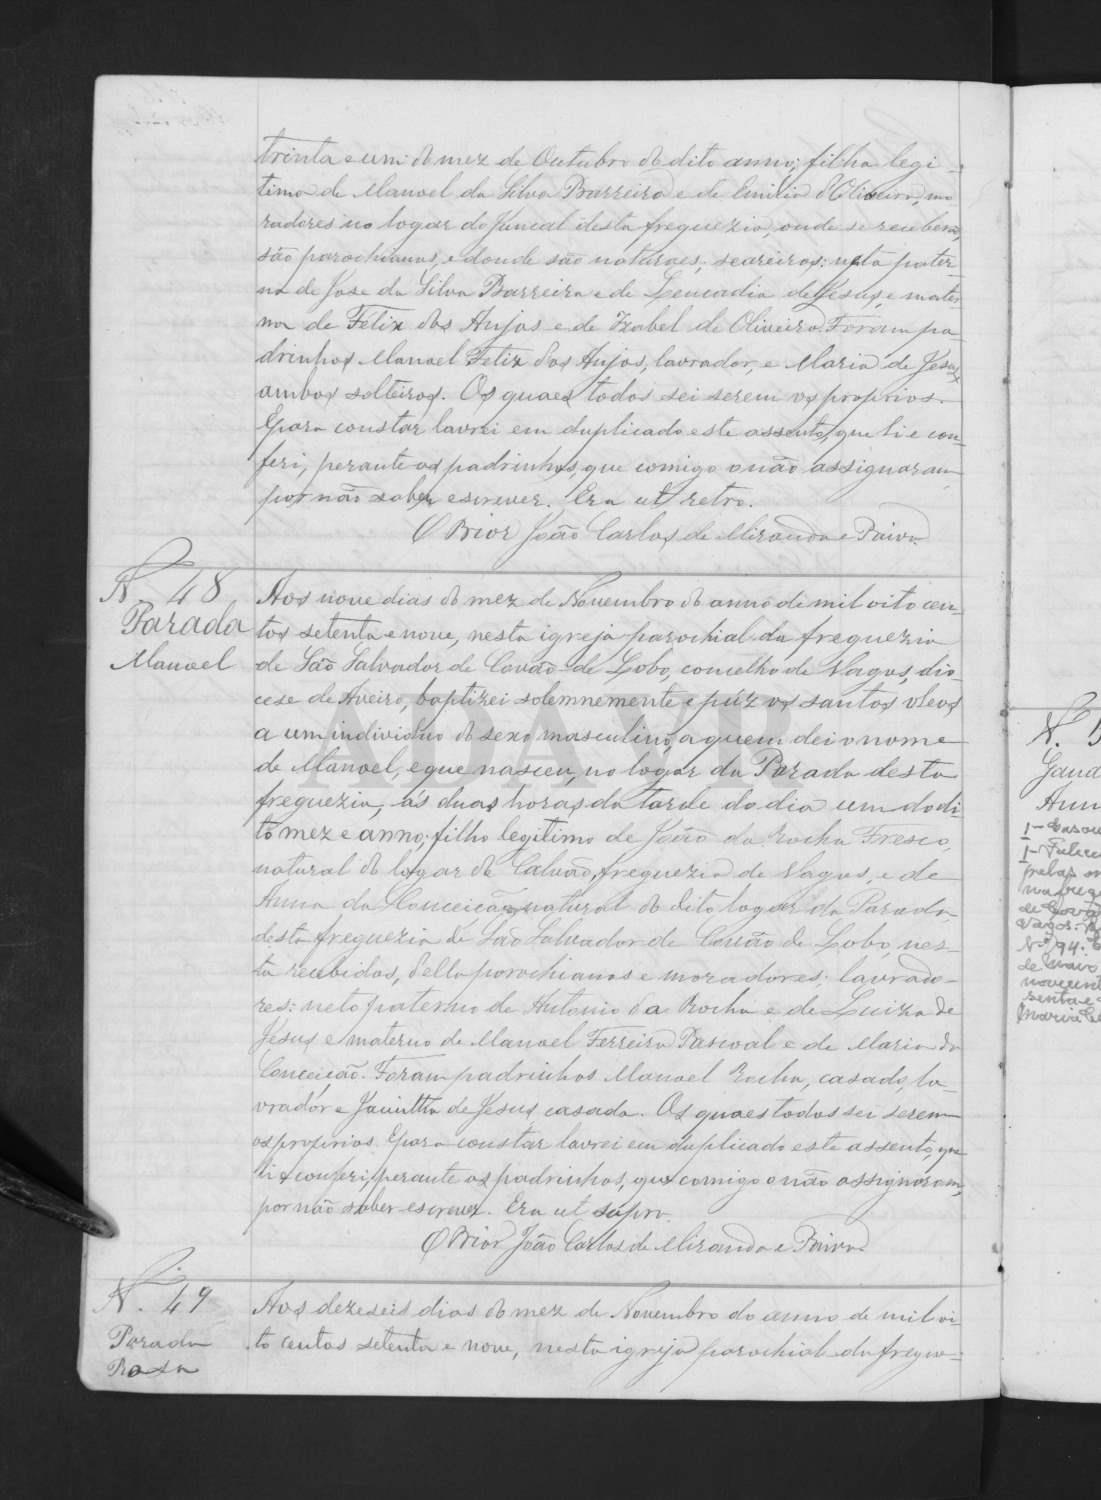 trinta e um do mez de Outubro do dito anno; filha legi-
tima de Manoel da Silva Barreira e de Emilia d'Oliveira, mo
radores no logar do Juncal desta freguezia, onde se receberam,
são parochianos, e donde são naturaes; seareiros: neta pater-
na de Jose da Silva Barreira e de Leucadia de Jesus, e mater
na de Felix dos Anjos e de Izabel de Oliveira. Foram pa
drinhos Manoel Felix dos Anjos, lavrador, e Maria de Jesus
ambos solteiros. Os quaes todos sei serem os proprios.
E para constar lavrei em duplicado este assento, que li e con-
feri, perante os padrinhos, que comigo o não assignaram
por não saber escrever. Era ut retro.
O Prior João Carlos de Miranda e Paiva.
N. 48
Parada
Manoel
Aos nove dias do mez de Novembro do anno de mil oito cen
tos setenta e nove, nesta igreja parochial da freguezia
de São Salvador de Covão de Lobo, concelho de Vagos, dio-
cese de Aveiro, baptizei solemnemente e púz os santos oleos
a um individuo do sexo masculino, a quem dei o nome
de Manoel, e que nasceu, no logar da Parada desta
freguezia, ás duas horas da tarde do dia um do di
to mez e anno; filho legitimo de João da Rocha Fresco,
natural do logar de Calvão, freguezia de Vagos, e de
Anna da Conceição, natural do dito logar da Parada,
desta freguezia de São Salvador de Covão de Lobo, nes-
ta recebidos, della parochianos e moradores; lavrado-
res: neto paterno de Antonio da Rocha e de Luiza de
Jesus e materno de Manoel Ferreira Pascoal e de Maria da
Conceição. Foram padrinhos Manoel Rocha, casado, la-
vrador e Jacintha de Jesus casada. Os quaes todos sei serem
os proprios. E para constar lavrei em duplicado este assento, que
li e conferi, perante os padrinhos, que comigo o não assignaram,
por não saber escrever. Era ut supra.
O Prior João Carlos de Miranda e Paiva.
N. 49
Parada
Rosa
Aos dezeseis dias do mez de Novembro do anno de mil oi-
to centos setenta e nove, nesta igreja parochial da fregue-
ADAVR
N. 5
Gand
Ann